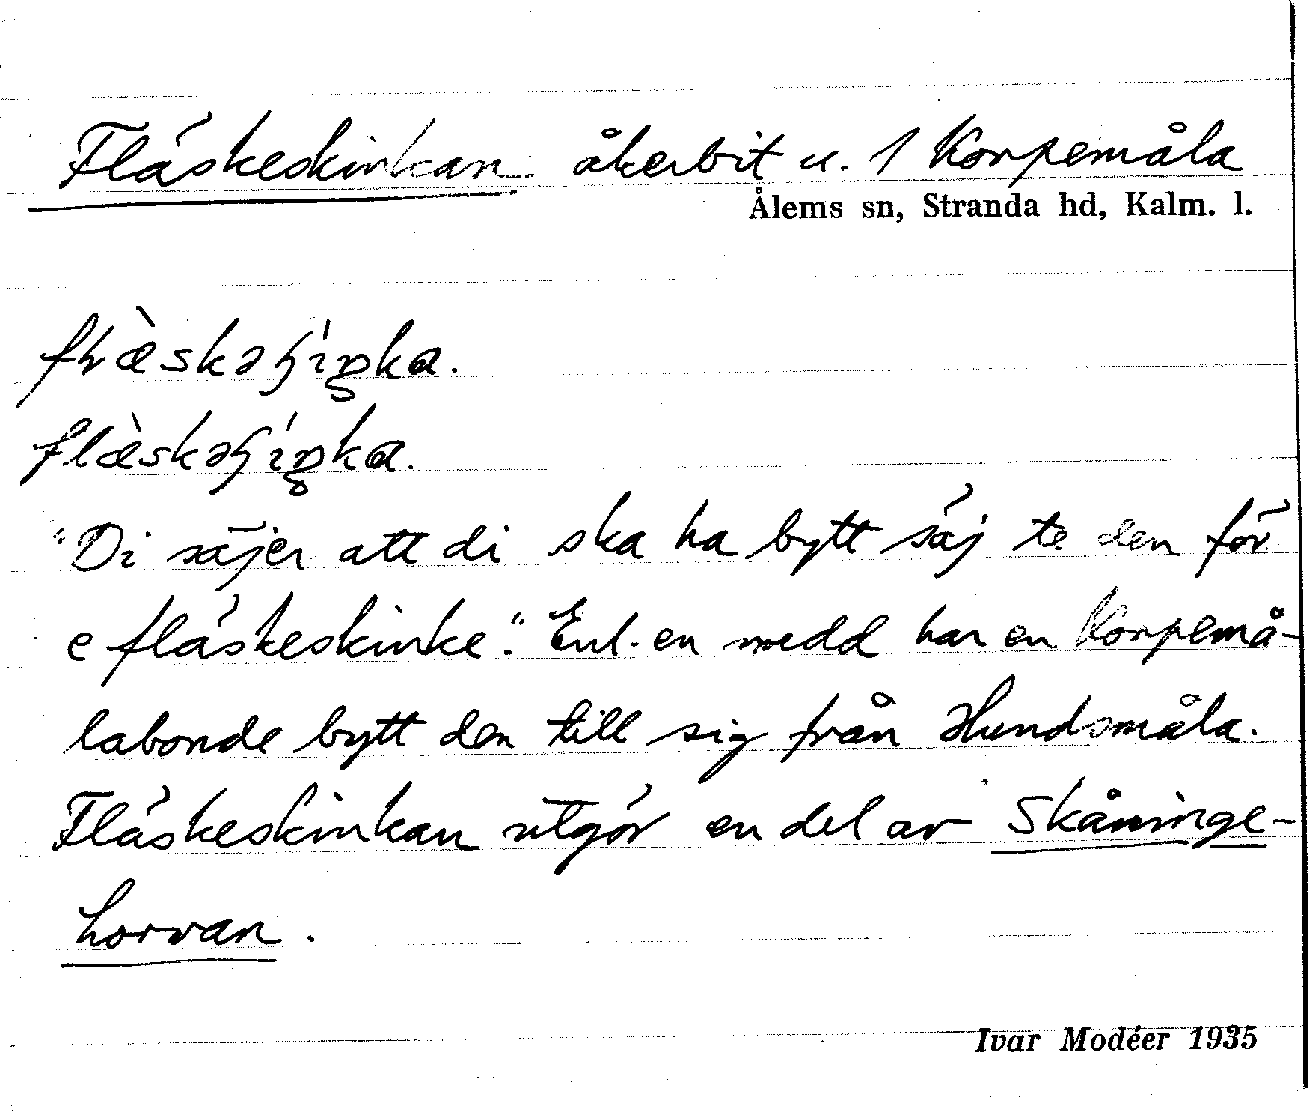 Fläskeskinkan åkerbit u. 1 Korpemåla
Ålems sn, Stranda hd, Kalm. l.
"Di säjer att di ska ha bytt säj te den för
e fläskeskinke". Enl. en medd har en Korpemå-
labonde bytt den till sig från Hundsmåla.
Fläskeskinkan utgör en del av Skåninge-
horvan.
Ivar Modéer 1935